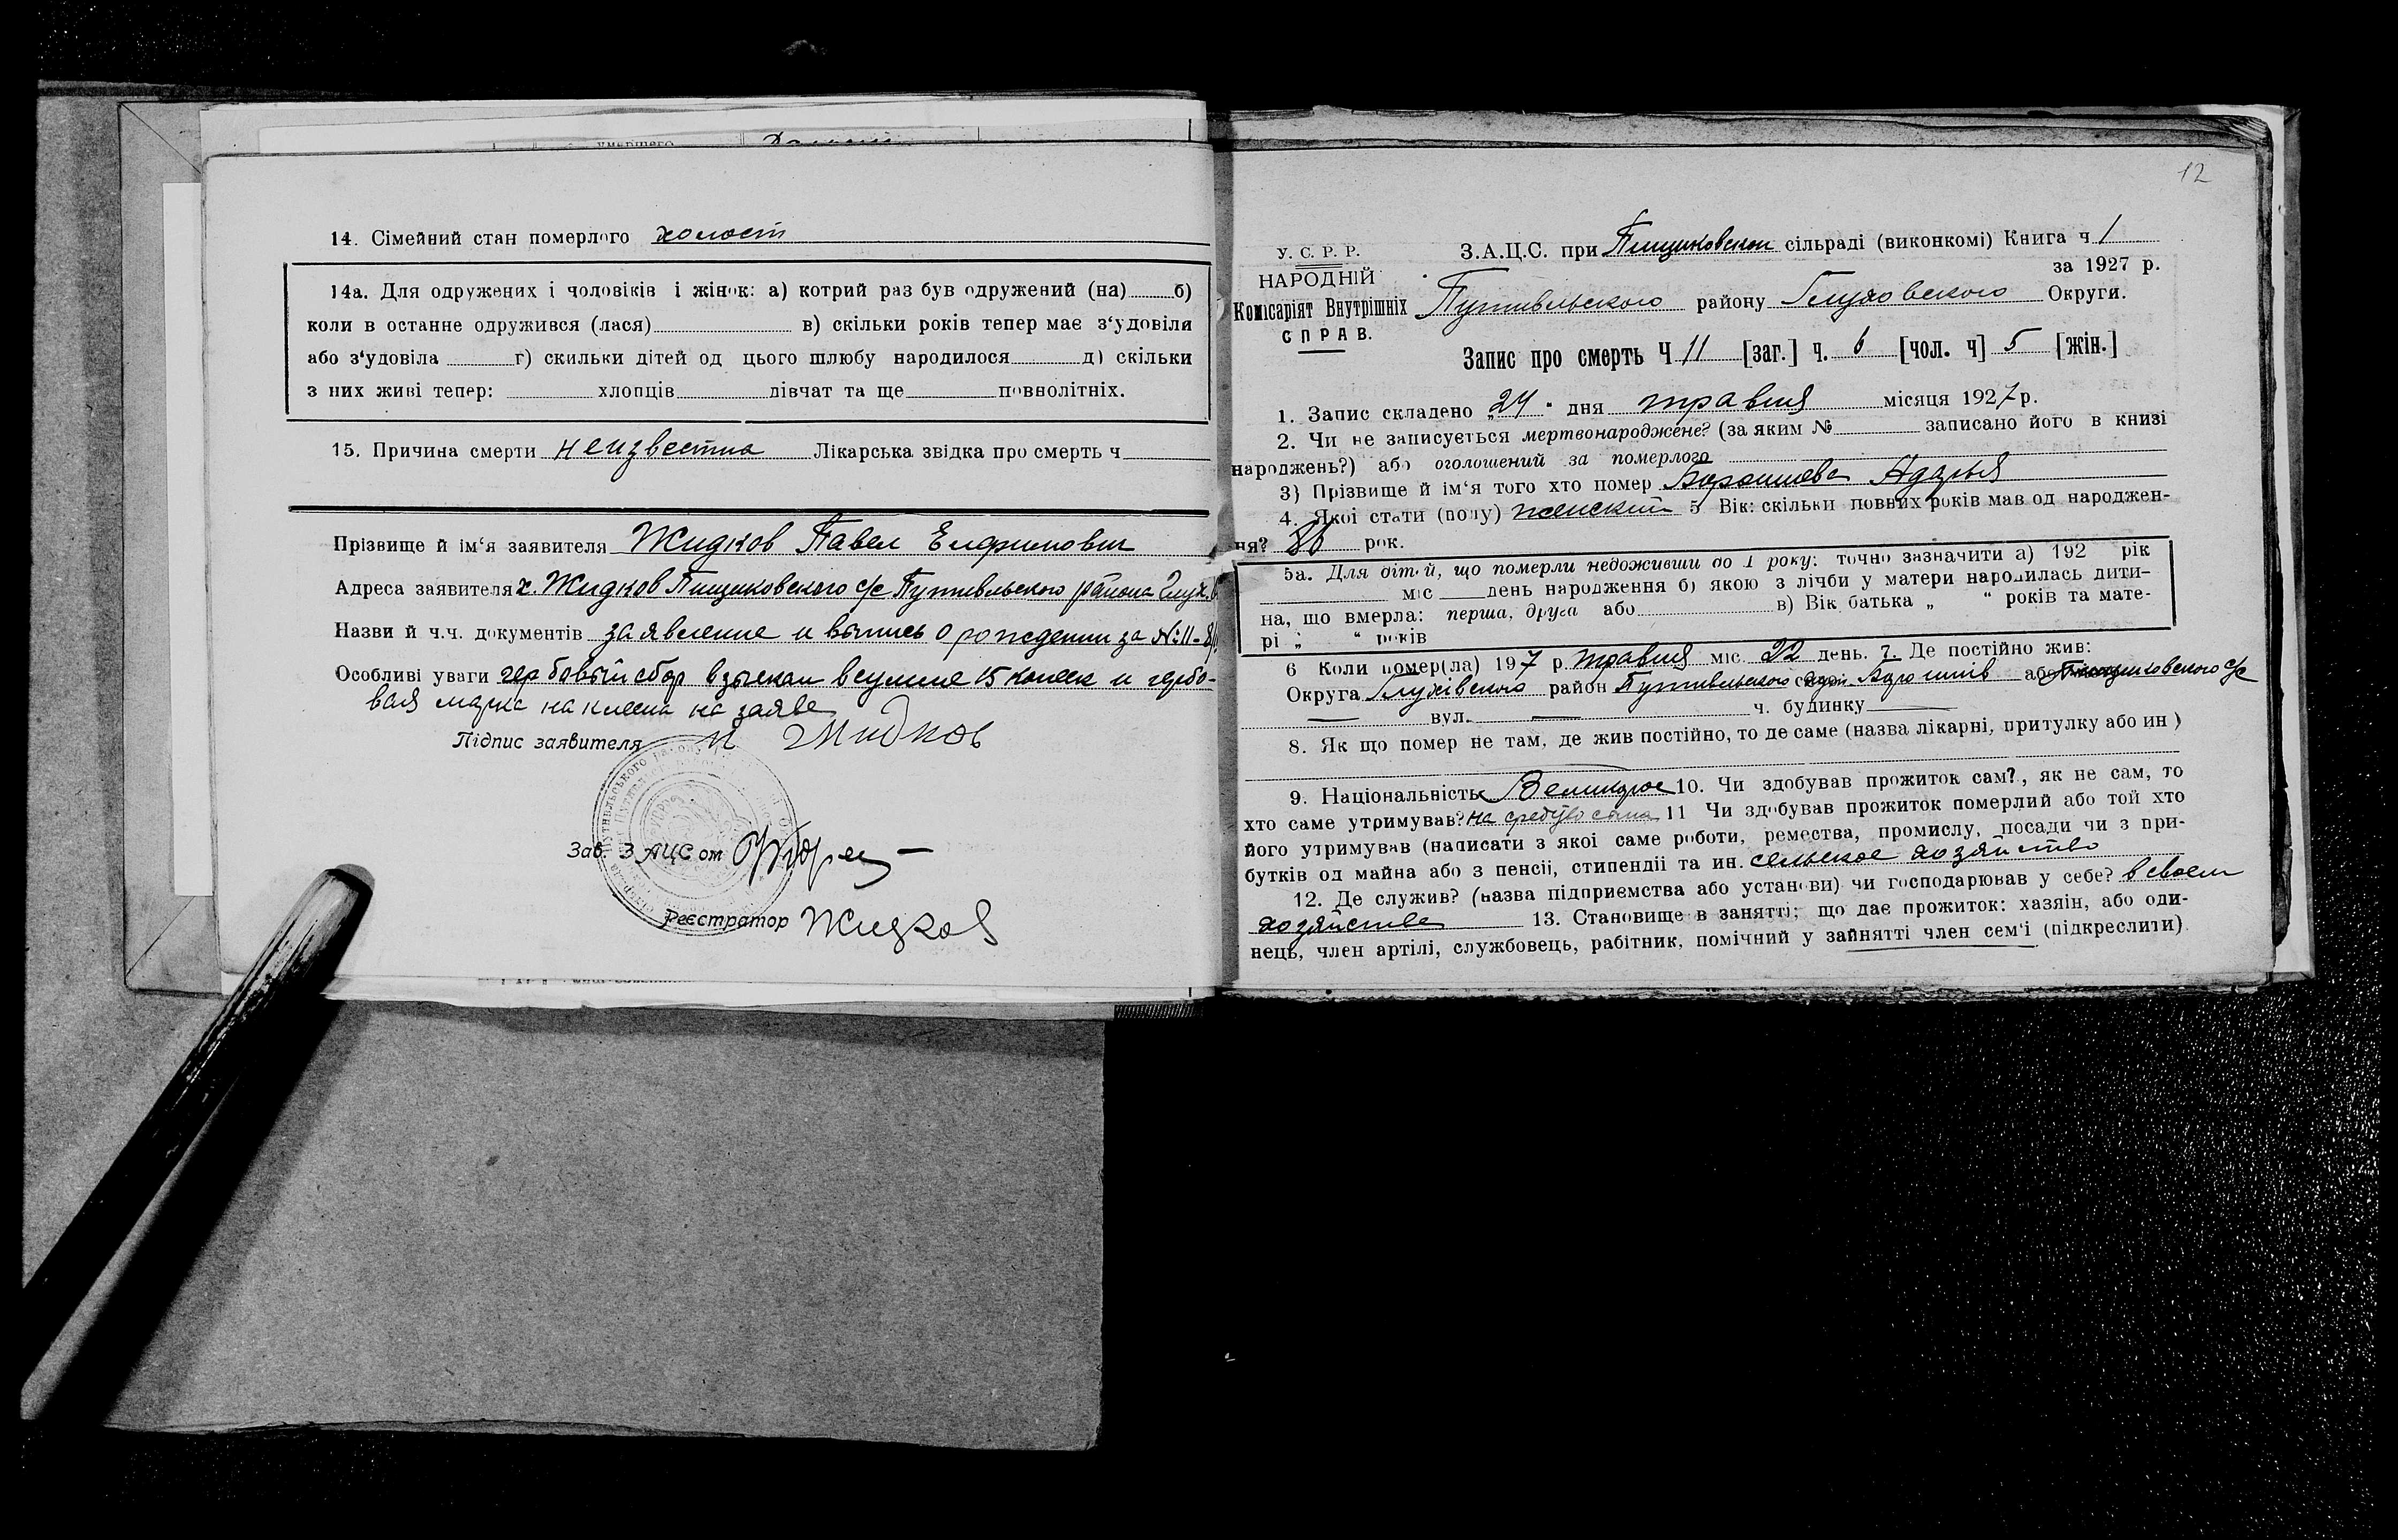 14. Сімейний стан померлого холост
14а. Для одружених і чоловіків і жінок: а) котрий раз був одружений (на) б)
коли в останне одружився (лася) в) скільки років тепер має з‘удовіли
або з‘удовіла г) скильки дітей од цього шлюбу народилося д) скільки
з них живі тепер: хлопців дівчат та ще повнолітніх.
15. Причина смерти неизвестна Лікарська звідка про смерть ч
Прізвище й ім‘я заявителя Жидков Павел
Адреса заявителя х. Жидков Пищиковского с/с Путивльского района Глух.
Назви й ч.ч. документів заявление и выпись о рождении за №11-
Особливі уваги гербовый сбор взыскан в сумме 15 копеек и гербо-
вая марка наклеена на заяве
Підпис заявителя Жидков
Зав. ЗАЦС‘ом
Реєстратор Жидков
12
У. С. Р. Р.
НАРОДНІЙ
Комісаріят Внутрішніх
СПРАВ.
З.А.Ц.С. при Пищиковской сільраді (виконкомі) Книга ч 1
за 1927 р.
Путивльского району Глуховского Округи.
Запис про смерть Ч 11 [заг.] ч. 6 [чол. ч] 5 [жін.]
1. Запис складено „24“ дня травня місяця 1927 р.
2. Чи не записується мертвонароджене? (за яким № записано його в книзі
народжень?) або оголошений за померлого
3) Прізвище й ім‘я того хто помер
4. Якої стати (полу) женский 5 Вік: скільки повних років мав од народжен-
ня? 86 рок.
5а. Для дітей, що померли недоживши до 1 року: точно зазначити а) 192 рік
міс день народження б) якою з лічби у матери народилась дити-
на, що вмерла: перша, друга або в) Вік батька „ “ років та мате-
рі „ “ років
6 Коли помер(ла) 197 р. травня міс. 22 день. 7. Де постійно жив:
Округа Глухівського район Путивльского або Пищиковского с/с
вул. ч. будинку
8. Як що помер не там, де жив постійно, то де саме (назва лікарні, притулку або ин)
9. Національність Великорос 10. Чи здобував прожиток сам?, як не сам, то
хто саме утримував? на 11 Чи здобував прожиток померлий або той хто
його утримував (написати з якої саме роботи, ремества, промислу, посади чи з при-
бутків од майна або з пенсії, стипендії та ин. сельское хозяйство
12. Де служив? (назва підприемства або установи) чи господарював у себе? в своем
хозяйстве 13. Становище в занятті; що дає прожиток: хазяїн, або оди-
нець, член артілі, службовець, рабітник, помічний у зайнятті член сем‘ї (підкреслити)